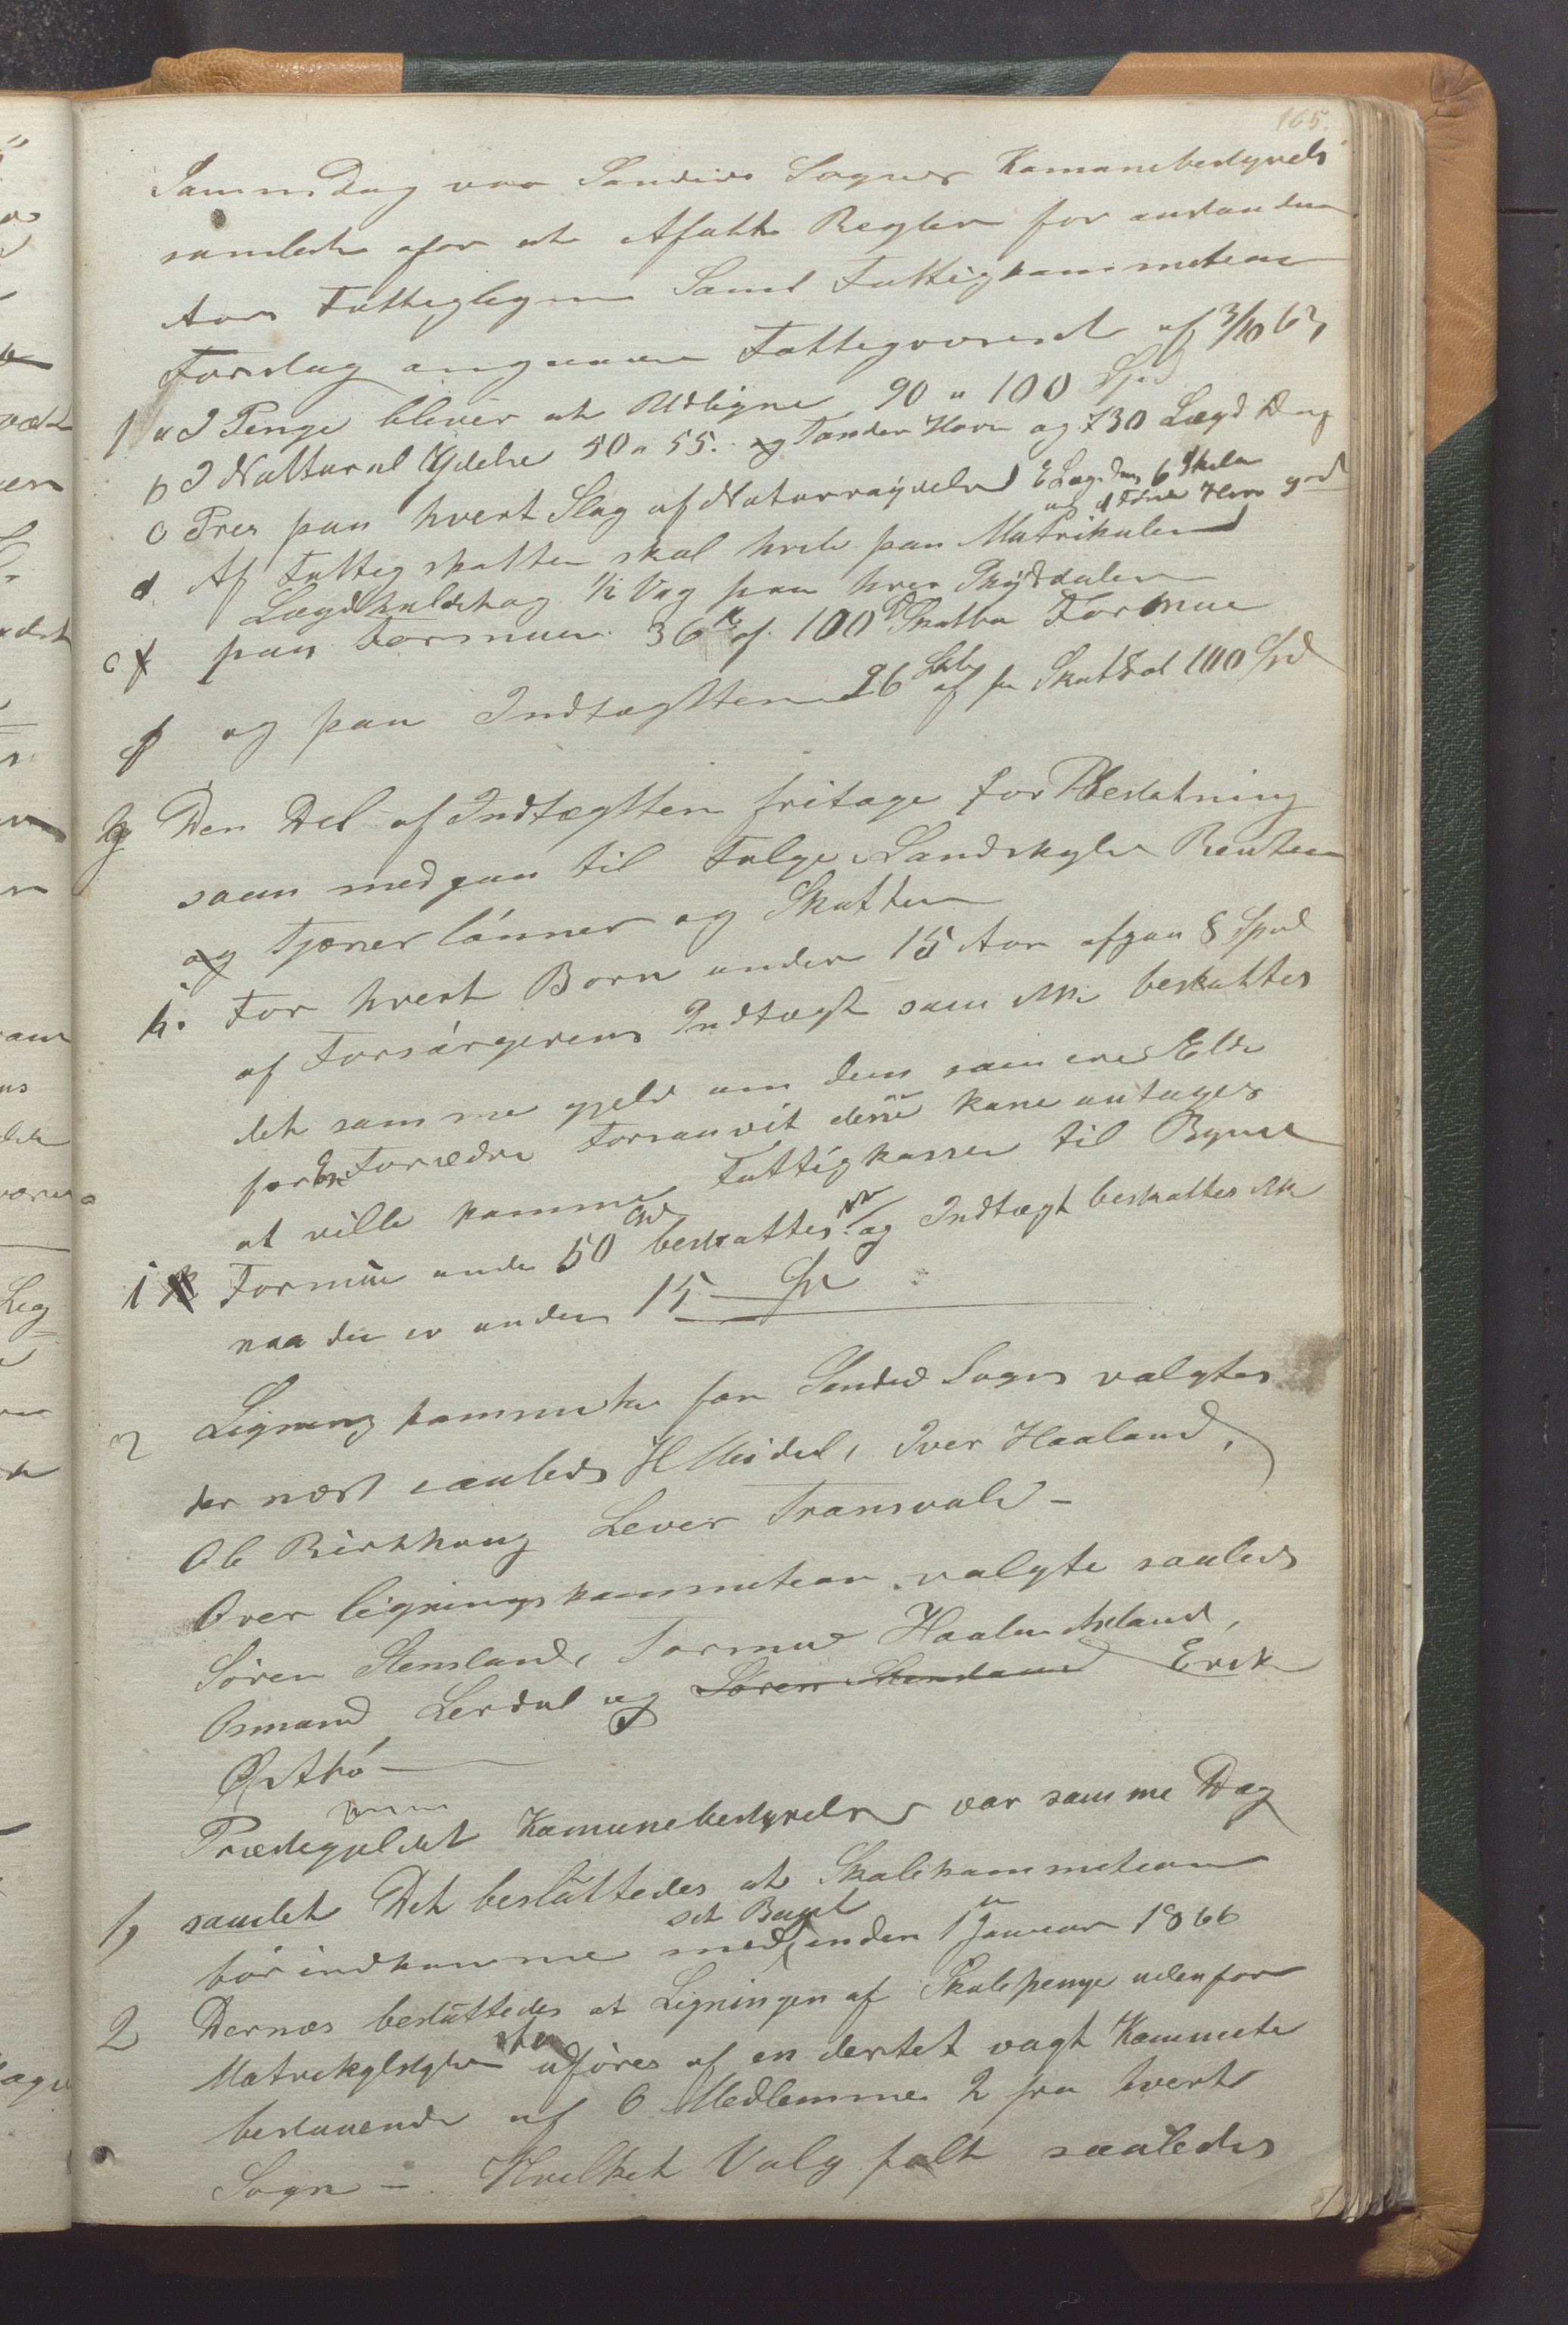 165.
Samme Dag var Sandeids Sogns Komunebestyrels
samlede for at Afatte Regler for anstanden
Aars Fattigligne Samt Fattigkommitean
Forslag angaaende Fattigvæsenet af 3/10 63
1 a I Penge bliver at Udligne 90 a 100 Spd
b I Natural Ydelse 50 a 55. Tønder Havre og 730 Lægd Dag
c Pris paa hvert Slag af Naturraydelse E Lægdag 6 Skil
og 1 Tønde Havre
d Af Fattig skatten skal hvile paa Matrikulen
Lægdhuldehag 1/2 Vog paa hver Skylddaler
e paa Formuen 36 s af 100 Spd Skatba Formue
f og paa Indtægtten 26 Skil af Skatbar 100 Spd
g Den Del af Indtægtten fritage for Beskatning
saam medgaa til Følge Landskyld Renter
og Tjenerlønner og Skatter
h. For hvert Born under 15 Aar afgaa 8 Spd
af Forsørgerens Indtægt som ikke beskattes
det samme gjeld om dem som ere Eldre
for Forældre forsauvit desse kane antages
at ville komme Fattigkassen til Byrde
i Formue under 50 Spd beskattes ikke og Indtægt beskattes ikke
naa den er under 15 Spd
2 Ligning kommite for Sandeid Sogn valgtes
der næst saaledes H Meidel, Iver Haaland,
Ole Birkhaug Lever Transvale –
Over ligningskommitean valgte saaledes
Søren Stensland, Tormod Haaland Axland,
Osmand Lerdal og Søren Stensland Erik
Østhø
Præstegjeldet Komunebestyrelse var samme Dag
1, samlet Det besluttedes at Skolekommitean
bør indkomme med sit Buget inden 1 Januar 1866
2 Dernæs besluttedes at Ligningen af Skolepenge udenfor
Matrikylskylden udføres af en dertet vagt Kommite
bestaaende af 6 Medlemme 2 fra hvert
Sogn –. Hvilket Valg falt saaledes